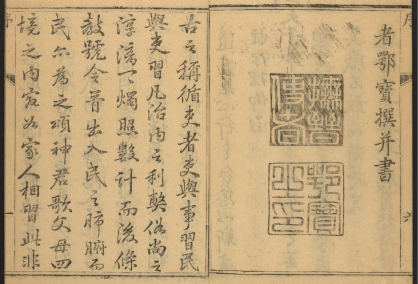 者鄂寶撰并書
撫晉使者
鄂寶之印
古之稱循吏者吏與事習民
與吏習凡治內之利獘俗尚之
淳漓一一燭照數計而後條
教號令胥出入民之肺腑而
民亦爲之頌神君歌父母四
境之內宛如家人相習此非
序